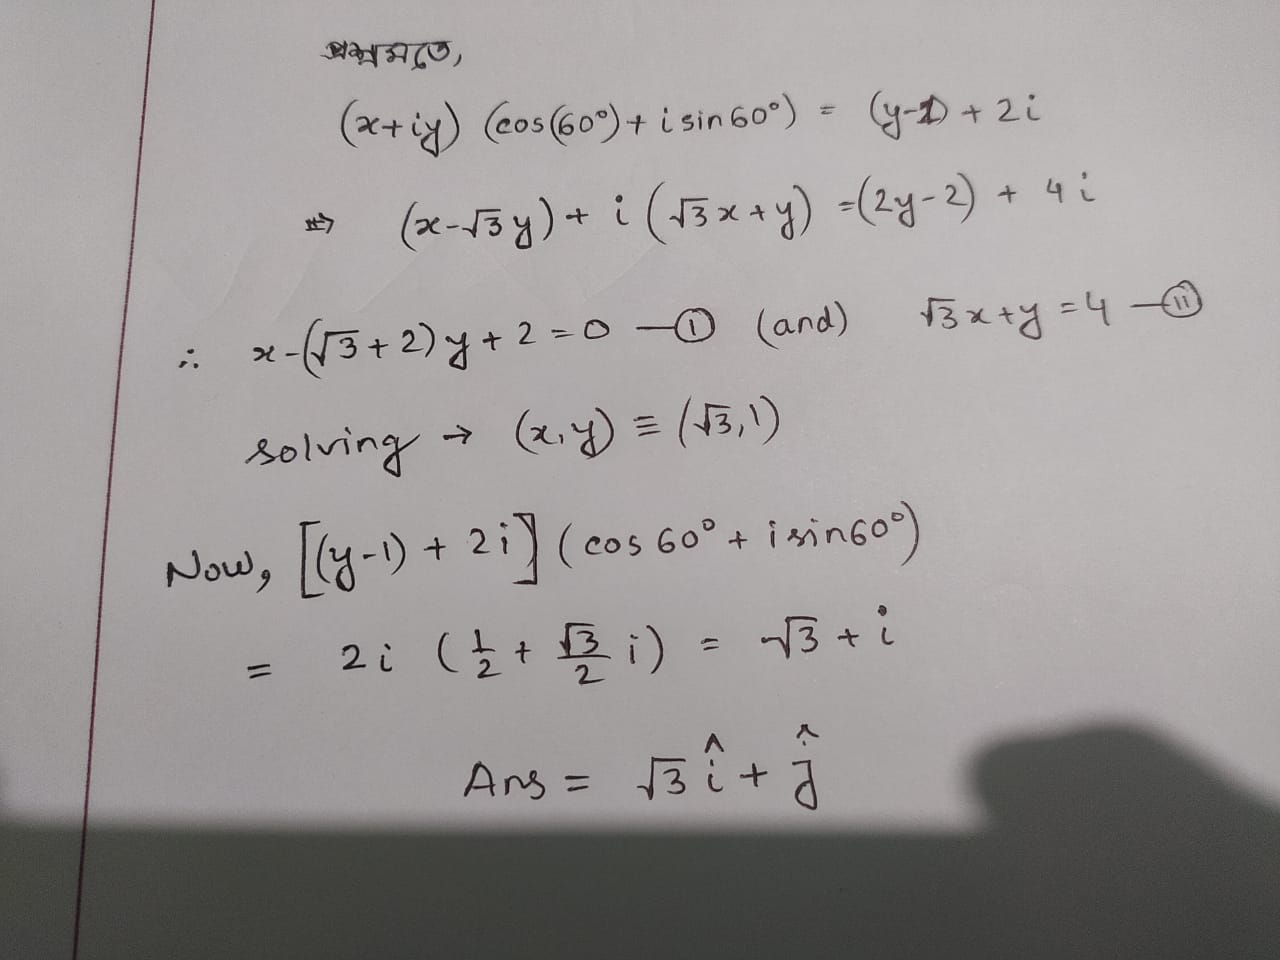 প্রশ্নমতে,
(x+iy) (cos(60°) + i sin60°) = (y-1) + 2i
⇒ (x-√3y) + i (√3x+y) = (2y-2) + 4i
∴ x-(√3+2)y+2=0 —① (and) √3x+y=4 —⑪
solving → (x,y) ≡ (√3,1)
Now, [(y-1) + 2i] (cos 60° + i sin60°)
= 2i (1/2 + √3/2 i) = -√3 + i
Ans = √3 î + ĵ